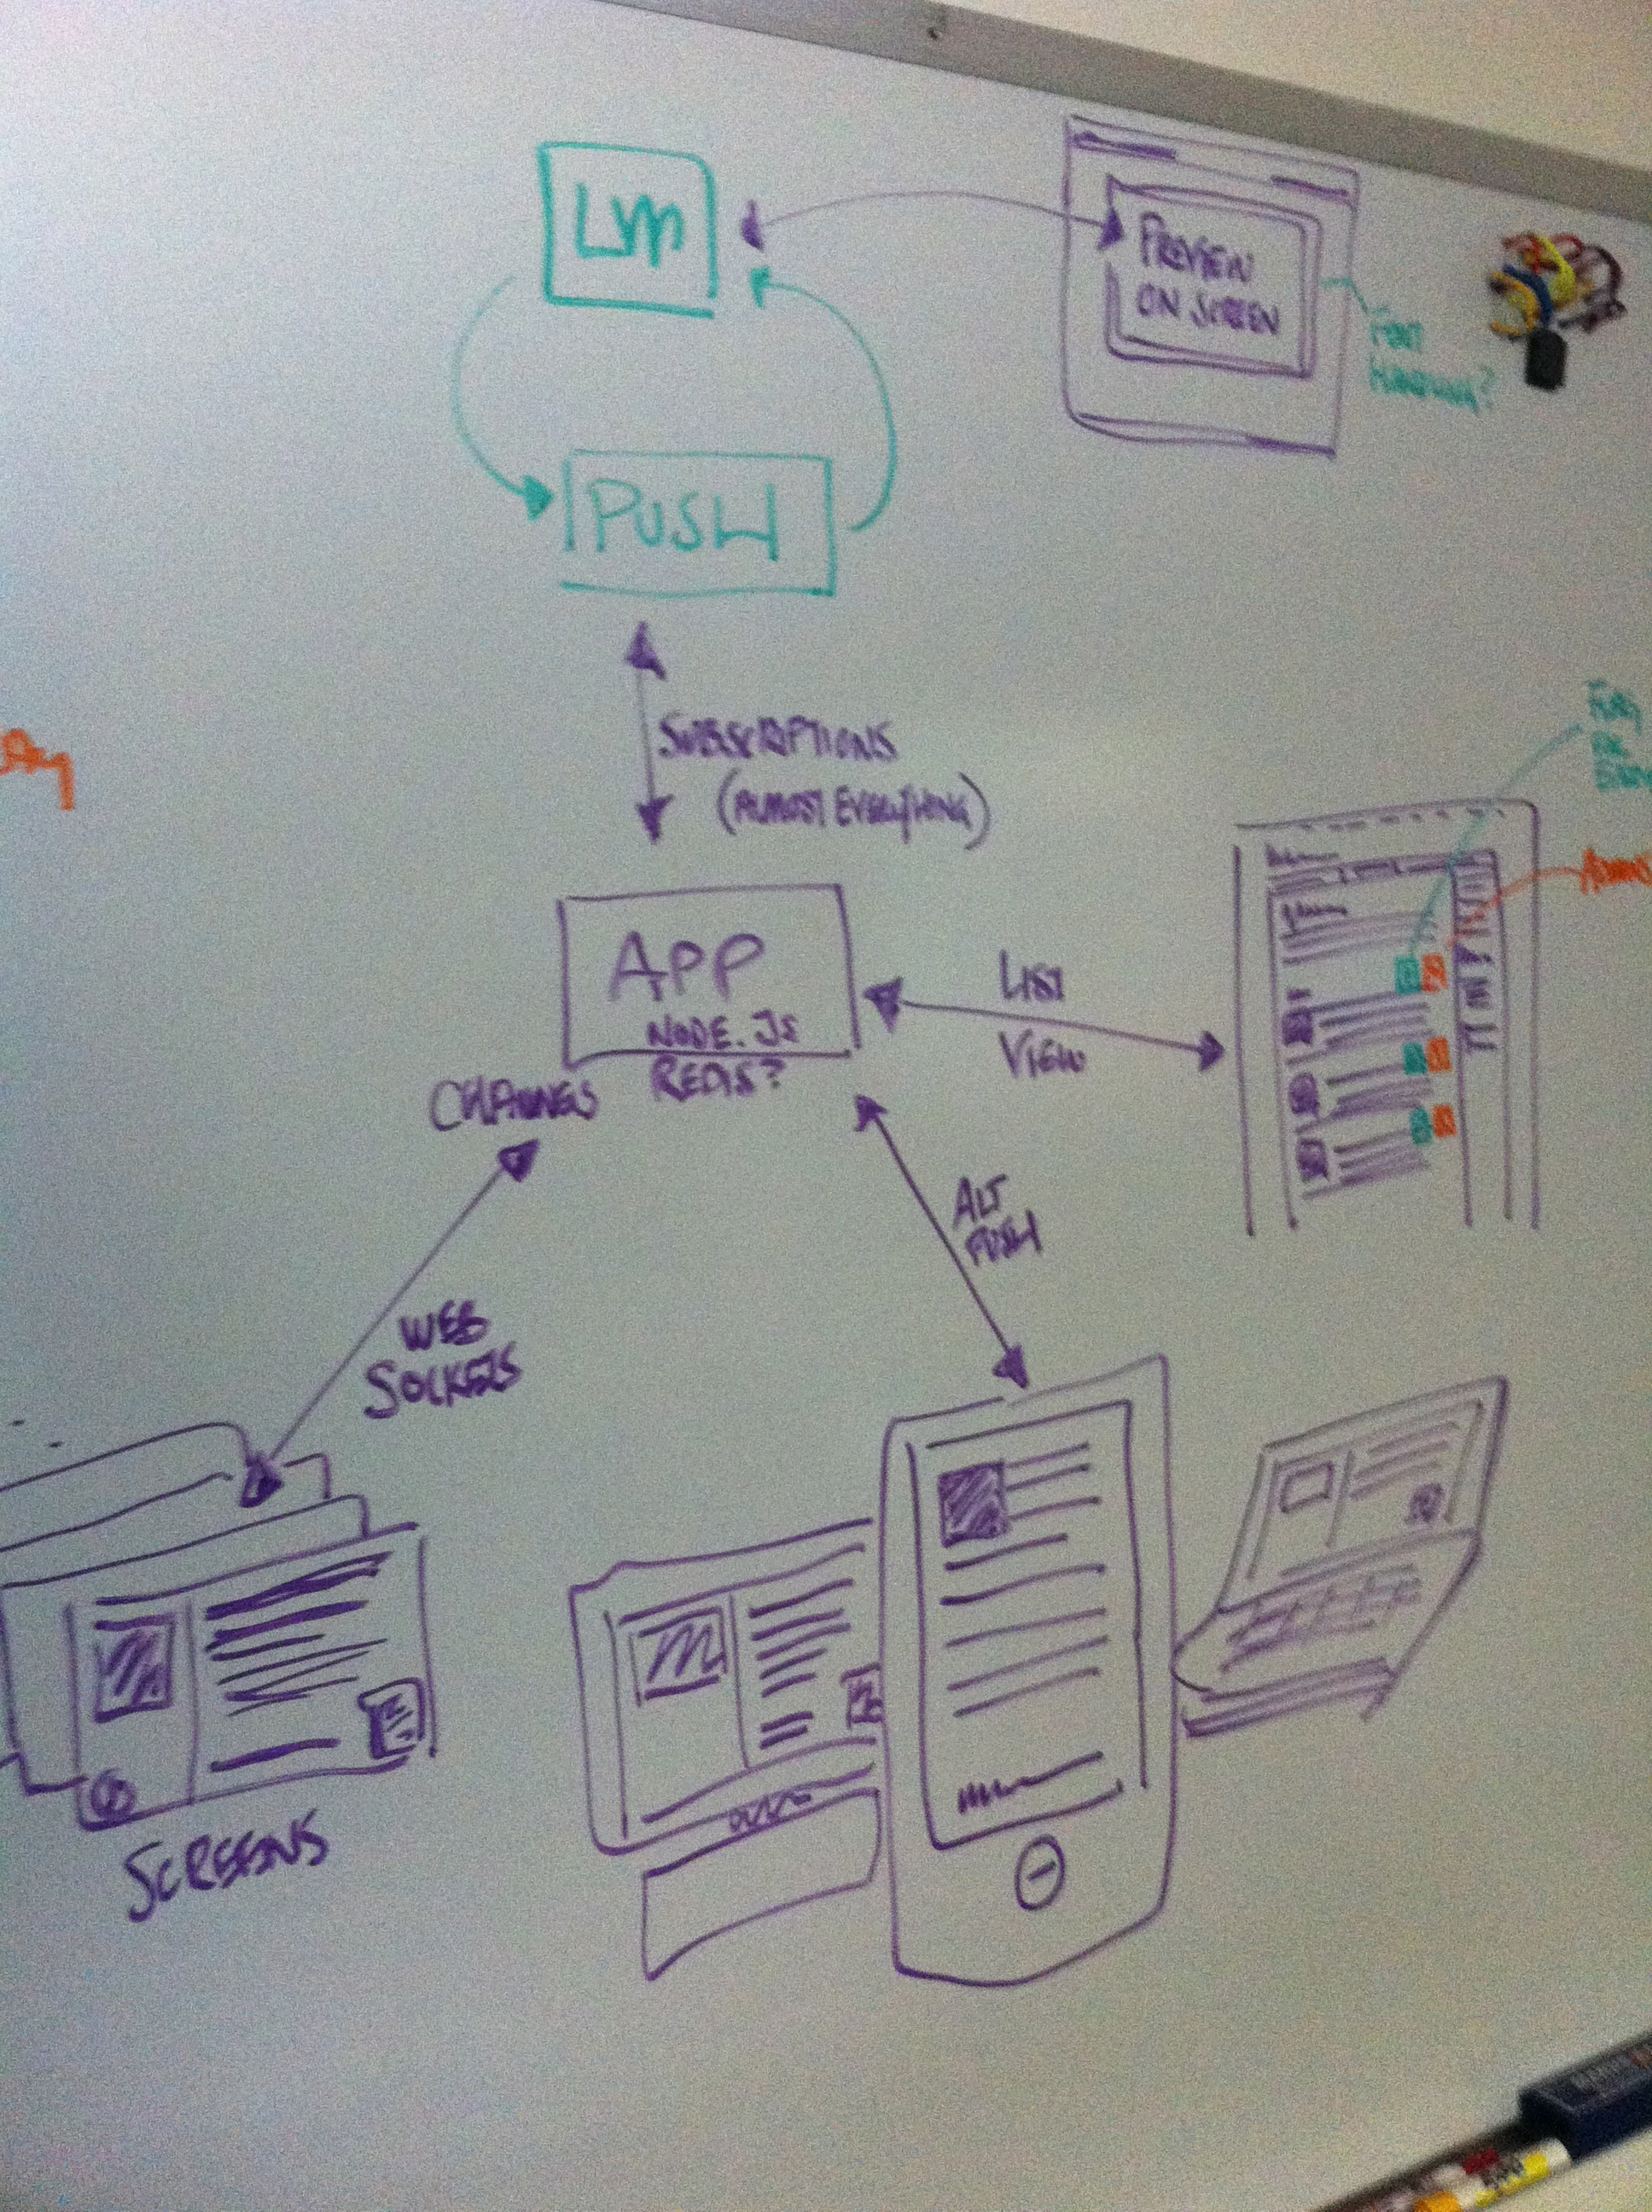 LM
PREVIEW
ON SCREEN
PUSH
SUBSCRIPTIONS
(ALMOST EVERYTHING)
APP
NODE.JS
REDIS?
LIST
VIEW
CHANGES
ALT
PUSH
WEB
SOCKETS
SCREENS